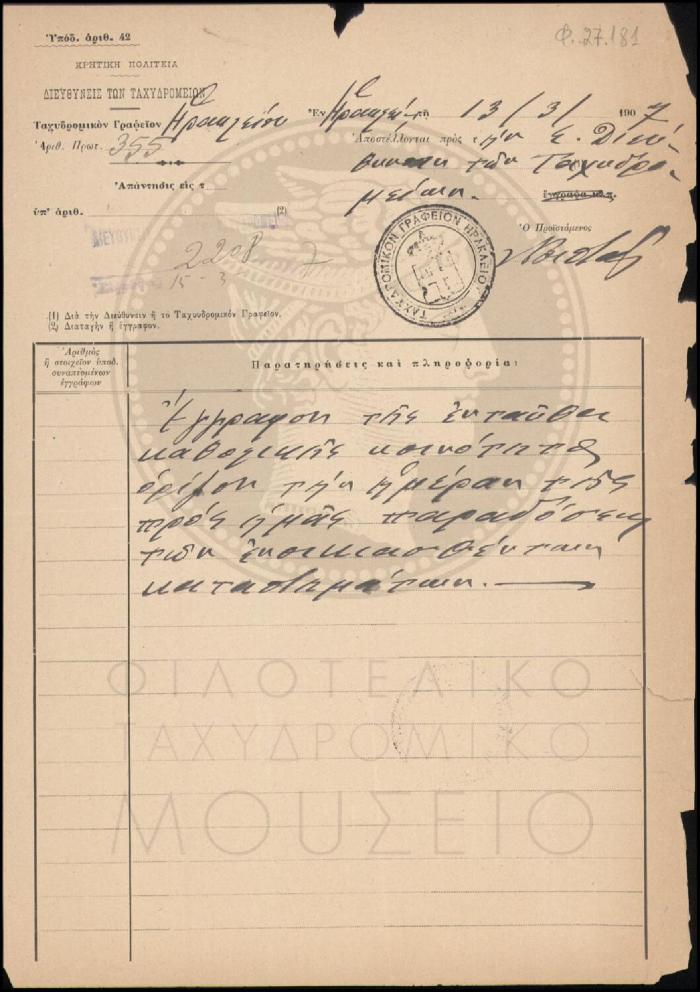 Ὑπόδ. ἀριθ. 42
Φ. 27.181
ΚΡΗΤΙΚΗ ΠΟΛΙΤΕΙΑ
ΔΙΕΥΘΥΝΣΙΣ ΤΩΝ ΤΑΧΥΔΡΟΜΕΙΩΝ
Ταχυδρομικὸν Γραφεῖον Ἡρακλείου
Ἐν Ἡρακλείῳ τῇ 13/3/ 1907
Ἀριθ. Πρωτ. 355
Ἀποστέλλονται πρὸς τὴν Σ. Διεύ-
θυνσιν τῶν Ταχυδρο-
μείων.
ἔγγραφα κλπ.
Ἀπάντησις εἰς τ
ὑπ' ἀριθ. (2)
Ὁ Προϊστάμενος
2208
15-3
7
ΤΑΧΥΔΡΟΜΙΚΟΝ ΓΡΑΦΕΙΟΝ ΗΡΑΚΛΕΙΟΥ
(1) Διὰ τὴν Διεύθυνσιν ἢ τὸ Ταχυδρομικὸν Γραφεῖον.
(2) Διαταγὴν ἢ ἔγγραφον.
Ἀριθμὸς
ἢ στοιχεῖον ὑποδ.
συναπτομένων
ἐγγράφων
Παρατηρήσεις καὶ πληροφορίαι
Ἔγγραφον τῆς ἐνταῦθα
καθολικῆς κοινότητος
ὁρίζον τὴν ἡμέραν τῆς
πρὸς ἡμᾶς παραδόσεως
τῶν ἐνοικιασθέντων
καταστημάτων.
ΦΙΛΟΤΕΛΙΚΟ
ΤΑΧΥΔΡΟΜΙΚΟ
ΜΟΥΣΕΙΟ